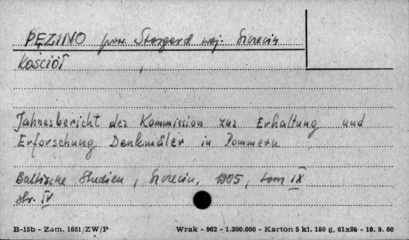 PĘZINO pow. Stargard woj. Szczecin
Kościół ,
Jahresbericht der Kommission zur Erhaltung und
Erforschung Denkmäler in Pommern
Baltische Studien, Szczecin, 1905, tom IX
str. IV
B-15b - Zam. 1681/ZW/P Wrak - 962 - 1.300.000 - Karton 5 kl. 180 g, 61x86 - 16. 9. 60